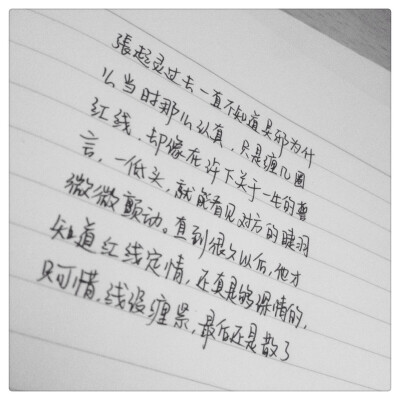 張起灵过去一直不知道吴邪为什
么当时那么认真，只是缠几圈
红线，却像在许下关于一生的誓
言，一低头，就能看见对方的睫羽
微微颤动。直到很久以后，他才
知道红线定情，还真是够深情的，
只可惜，线没缠紧，最后还是散了